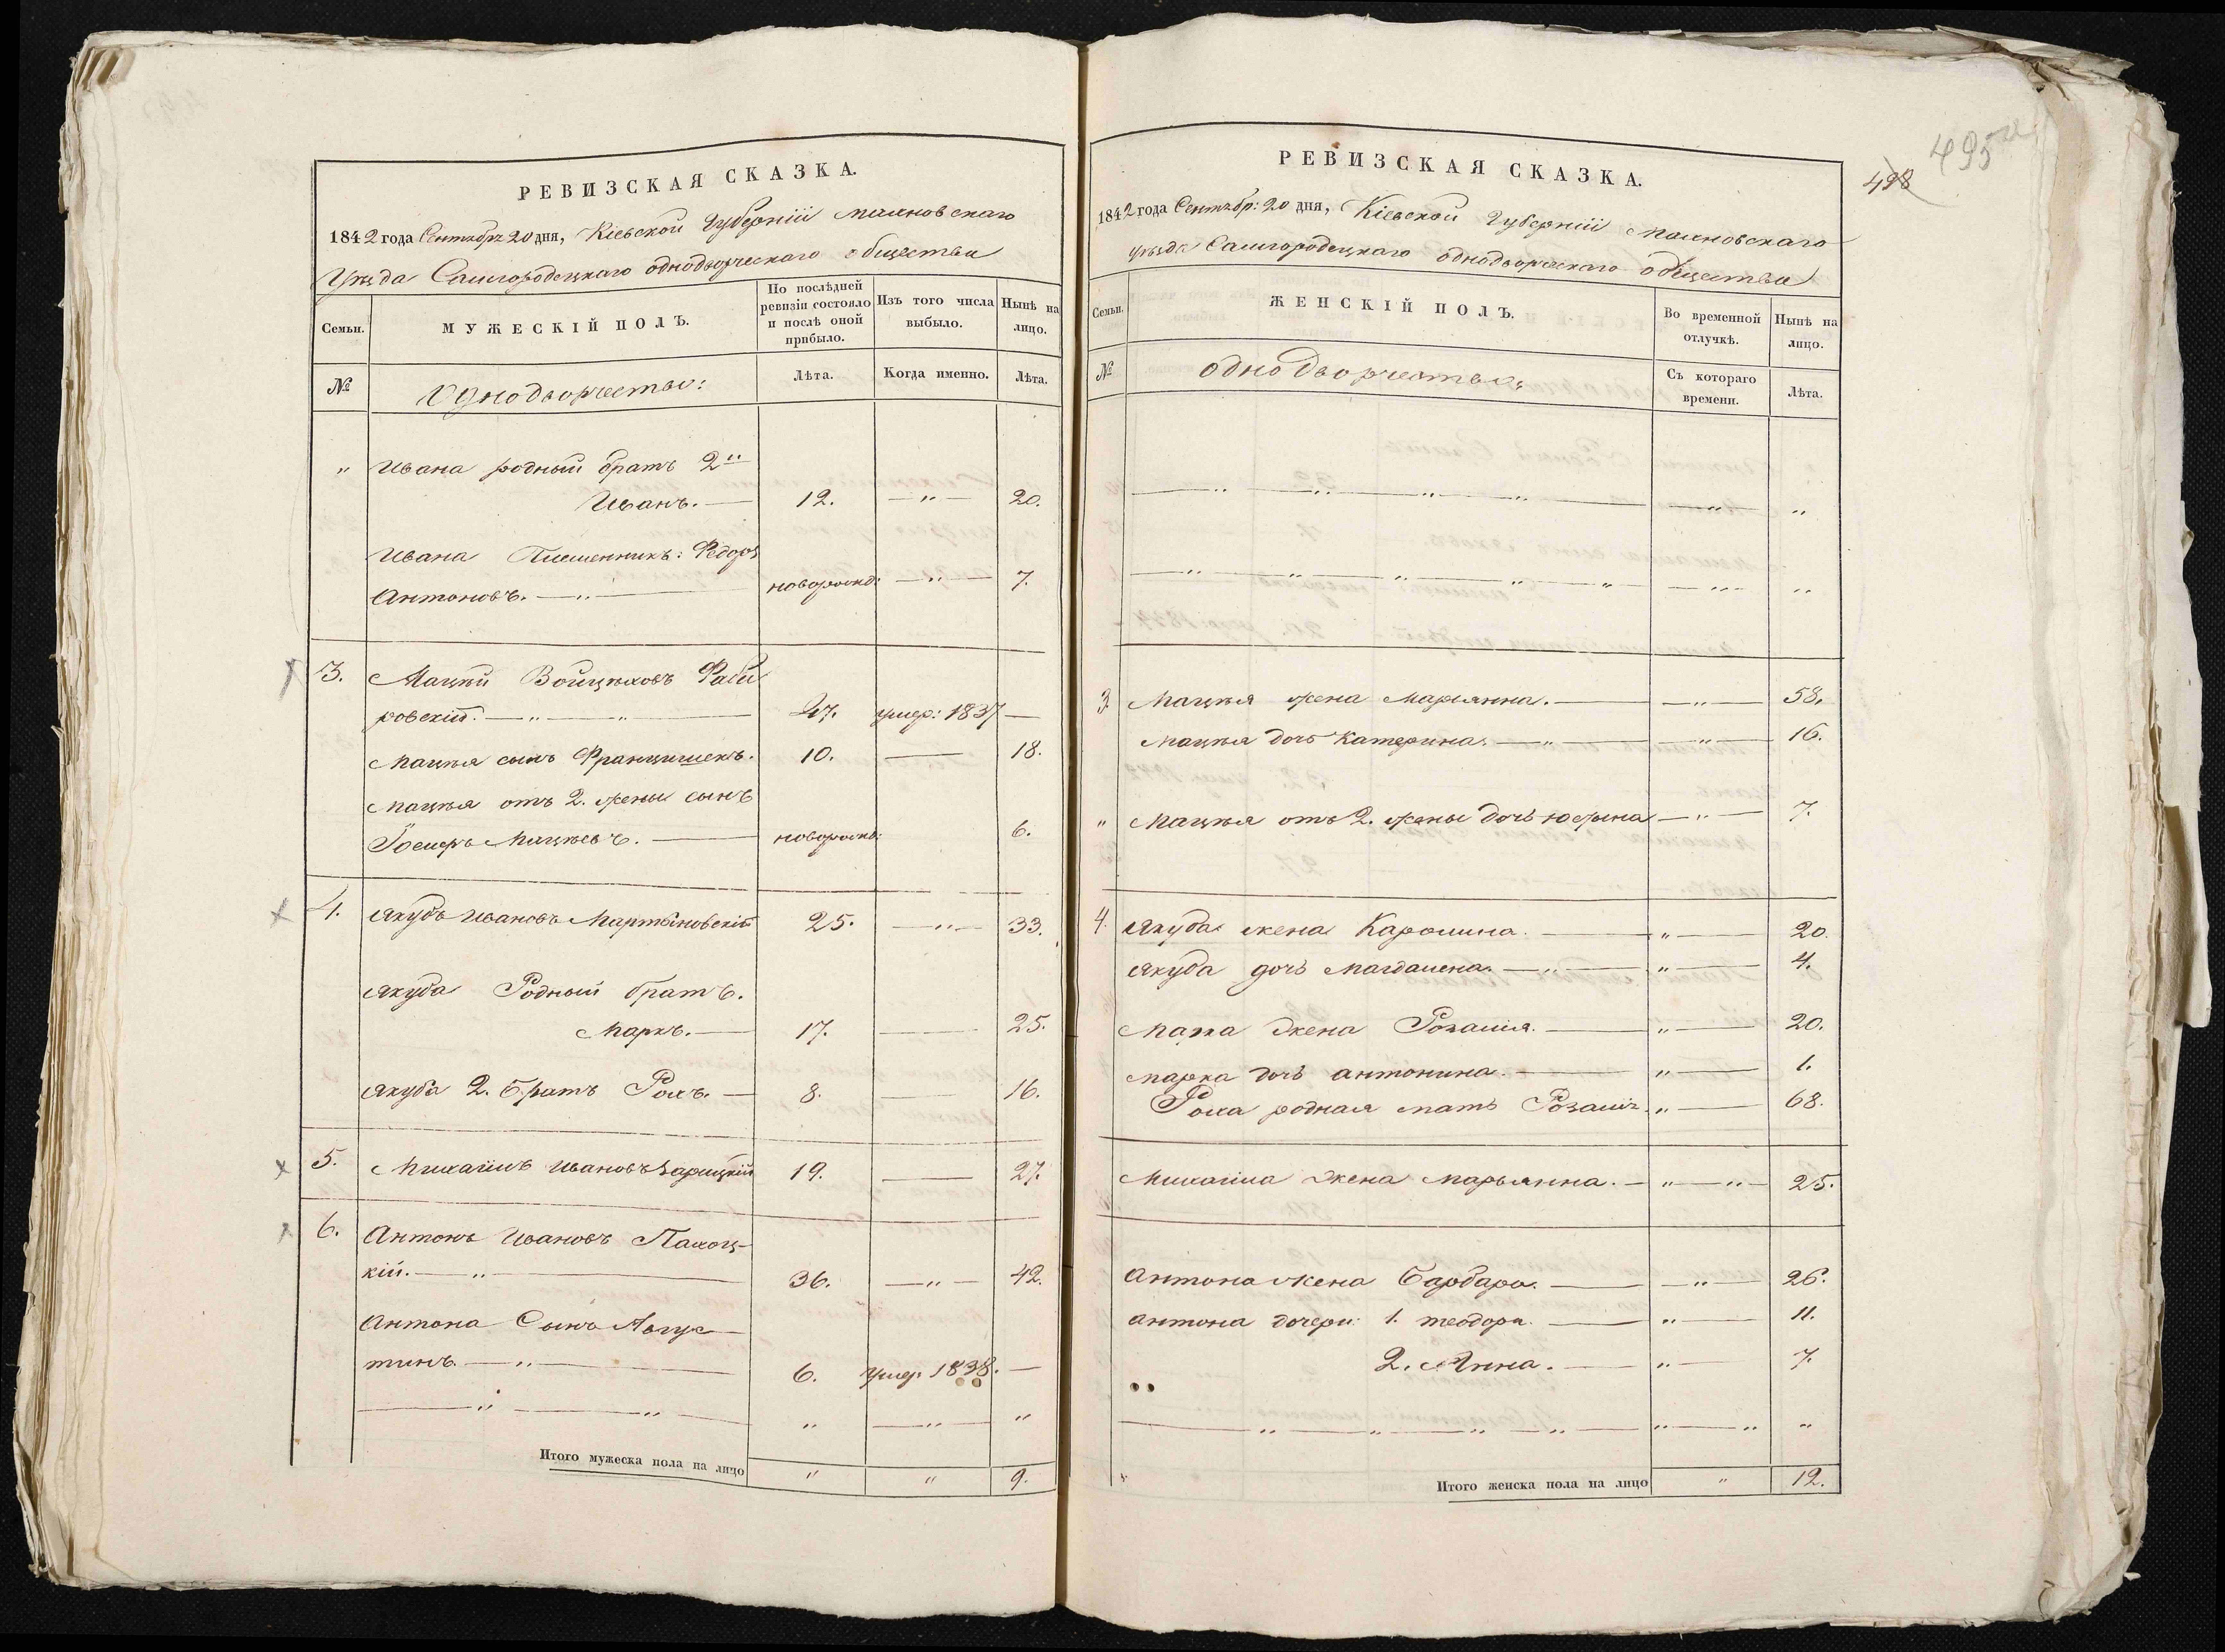 РЕВИЗСКАЯ СКАЗКА.
1842 года Сентябр 20 дня, Кіевской Губерніи Махновскаго
Уѣзда Самгородецкаго однодворческаго общества
Семьи.
МУЖЕСКІЙ ПОЛЪ.
По послѣдней ревизіи состояло и послѣ оной прибыло.
Изъ того числа выбыло.
Нынѣ на лицо.
№
Однодворчество:
Лѣта.
Когда именно.
Лѣта.
" Ивана родный братъ 2й
Иванъ. — 12. — " — 20.
Ивана Племенникъ: Федоръ
Антоновъ. — " — новорожд: — " — 7.
3. Мацѣй Войцѣховъ
ровскій. — " — " — 47. умер: 1837 —
Мацѣя сынъ Францишекъ. 10. — 18.
Мацѣя отъ 2. жены сынъ
Мацѣевъ. — новорожд: 6.
4. Якубъ Ивановъ Мартыновскій 25. — " — 33.
Якуба Родный братъ.
Маркъ. — 17. — 25.
Якуба 2. Братъ Рохъ. — 8. — 16.
5. Михаилъ Ивановъ Зарицкій 19. — 27.
6. Антонъ Ивановъ Пахоц-
кій. — " — 36. — " — 42.
Антона Сынъ Авгус-
тинъ. — " — 6. умер. 1838. —
— " — " — " — " — "
Итого мужеска пола на лицо " " 9.
498 495
РЕВИЗСКАЯ СКАЗКА.
1842 года Сентябр: 20 дня, Кіевской Губерніи Махновскаго
уѣзда Самгородецкаго однодворческаго общества
Семьи.
ЖЕНСКІЙ ПОЛЪ.
Во временной отлучкѣ.
Нынѣ на лицо.
№
однодворчество:
Съ котораго времени.
Лѣта.
— " — " — " — " — " — "
— " — " — " — " — " — " — "
3. Мацѣя жена Марьянна. — " — 58.
Мацѣя дочь Катерина. — " — " — 16.
" Мацѣя отъ 2. жены дочь Юзефина — " — 7.
4. Якуба жена Каролина. — " — 20.
Якуба дочь Магдалена. — " — " — 4.
Марка жена Розалія. — " — 20.
Марка дочь антонина. — " — 1.
Роха родная мать Розалія. " — 68.
Михаила жена Марьянна. — " — " — 25.
Антона жена Барбара. — " — 26.
антона дочери: 1. теодора. — " — 11.
2. Анна. — " — 7.
— " — " — " — " — " — " — "
Итого женска пола на лицо " 12.